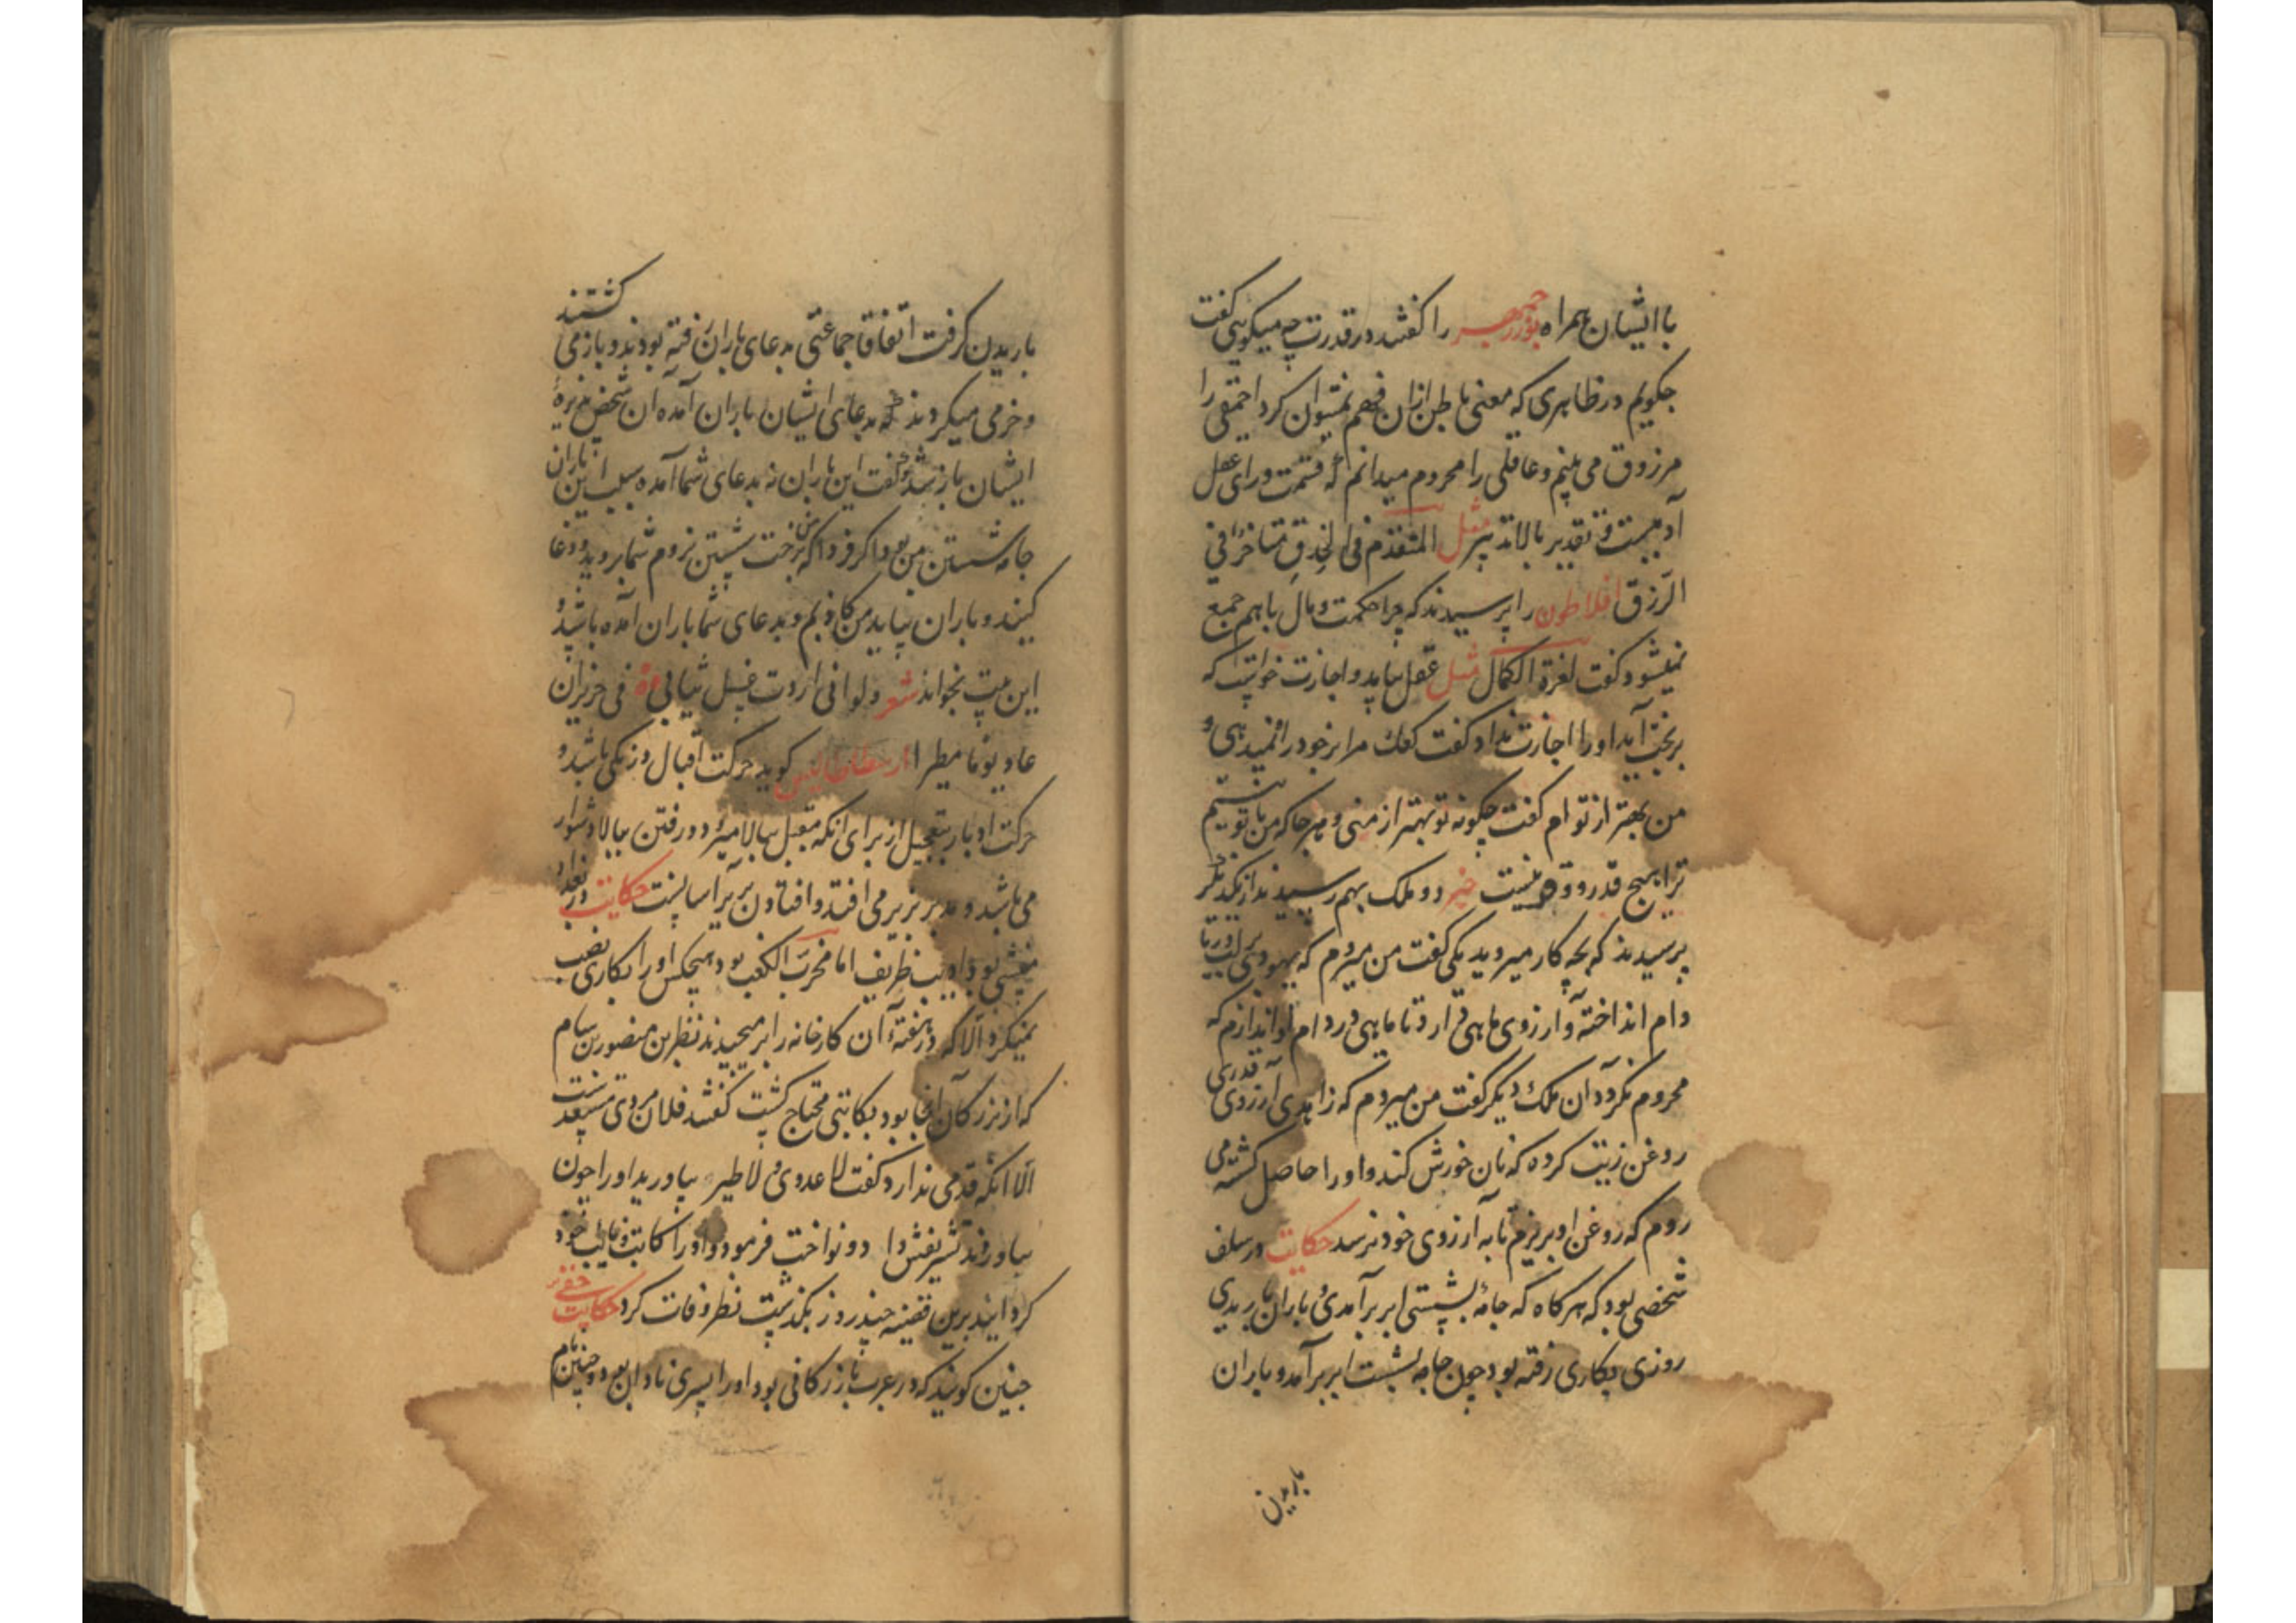 با ایشان همراه بوزرجمهر را گفتند در قدرت چه میگویی گفت
چگویم در ظاهری که معنی باطن ازان فهم نمیتوان کرد احمقی را
مرزوق می بینم و عاقلی را محروم میدانم که قسمت ورای عقل
آدمیست و تقدیر بالا تدبیر مثل المتقدم فی الحذق متاخر فی
الرزق افلاطون را پرسیدند که چرا حکمت و مال باهم جمع
نمیشود گفت لعزة الکمال مثل عقل بیاید و اجازت خواست که
بر بخت آید او را اجازت نداد گفت مرا بر خود راه نمیدهی و
من بهتر از تو ام گفت چگونه تو بهتر از منی و هر جا که من با تو نیستم
ترا هیچ قدر و وقع نیست خبر دو ملک بهم رسیدند از یکدیگر
پرسیدند که بچه کار میروید یکی گفت من میروم که یهودی بر لب دریا
دام انداخته و آرزوی ماهی دارد تا ماهی در دام او اندازم که
محروم نگردد آن ملک دیگر گفت من میروم که زاهدی آرزوی قدری
روغن زیت کرده که نان خورش کند و او را حاصل گشته می
روم که روغن او بریزم تا به آرزوی خود نرسد حکایت در سلف
شخصی بود که هر گاه که جامه بشستی ابر برآمدی و باران باریدی
روزی بکاری رفته بود چون جامه بشست ابر برآمد و باران
باریدن
باریدن گرفت اتفاقا جماعتی بدعای باران رفته بودند و باز می گشتند
و خرمی میکردند که بدعای ایشان باران آمده آن شخص پذیرهٔ
ایشان باز شد و گفت این باران نه بدعای شما آمده سبب این باران
جامه شستن من بود اگر فردا که رخت شستن نروم شما بروید و دعا
کنید و باران بیاید من کاذبم و بدعای شما باران آمده باشد و
این بیت بخواند شعر ولو انی اردت غسل ثیابی فی حزیران
عاد یوما مطیرا ارسطاطالیس گوید حرکت اقبال دزنکی باشد و
حرکت ادبار بتعجیل از برای آنکه مقبل ببالا میرود و رفتن ببالا دشوار
می باشد و مدبر بزیر می افتد و افتادن بزیر آسانست حکایت در بغداد
منشی بود ادیب ظریف اما مخرب الکعب بود هیچکس او را بکاری نصب
نمیکرد الا که در هفته آن کارخانه را بر میچیدند نظر بن منصور بن بسام
که از بزرگان آنجا بود بکاتبی محتاج گشت گفتند فلان مردی مستعد است
الا آنکه قدمی ندارد گفت لا عدوی و لا طیره بیاورید او را چون
بیاوردند تشریفش داد و نواخت فرمود و او را کاتب و نایب خود
گردانید برین قضیه چند روز بگذشت نظر وفات کرد حکایت
چنین گویند که در عرب بازرگانی بود او را پسری نادان بود و حنین نام